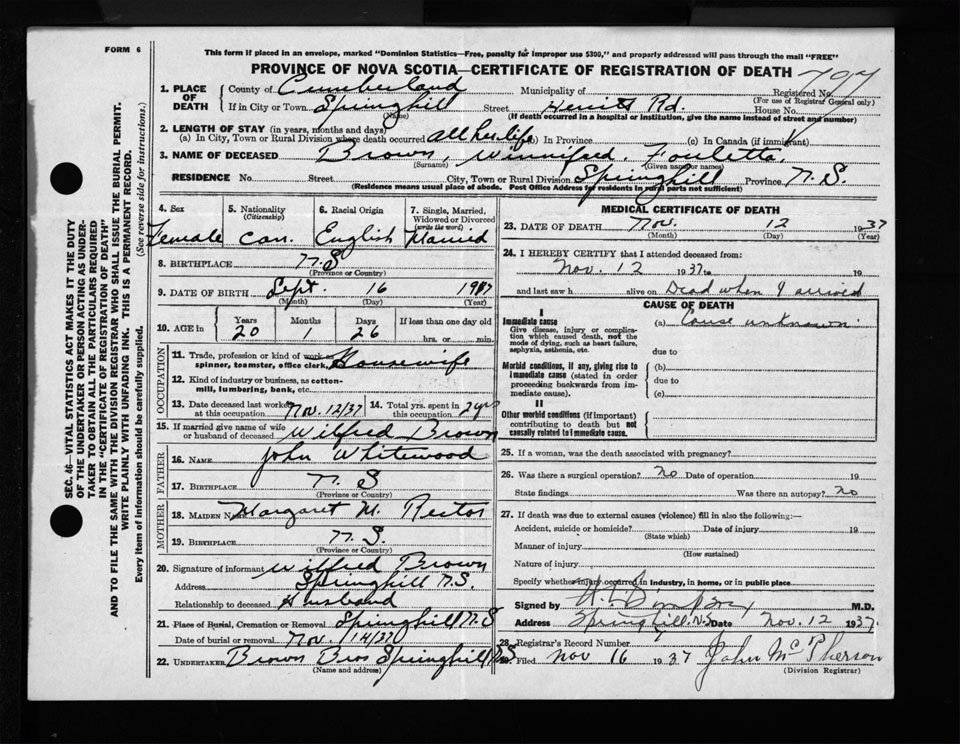 FORM 6
This form if placed in an envelope, marked "Dominion Statistics—Free, penalty for improper use $300," and properly addressed will pass through the mail "FREE"
PROVINCE OF NOVA SCOTIA—CERTIFICATE OF REGISTRATION OF DEATH
1. PLACE OF DEATH
County of Cumberland Municipality of Registered No. 797
(For use of Registrar General only)
If in City or Town Springhill Street Herritt Rd. House No.
(Name) (If death occurred in a hospital or institution, give the name instead of street and number)
2. LENGTH OF STAY (in years, months and days)
(a) In City, Town or Rural Division where death occurred all her life (b) In Province (c) In Canada (if immigrant)
3. NAME OF DECEASED Brown, Winnifred, Fouletta
(Surname) (Given name or names)
RESIDENCE No. Street City, Town or Rural Division Springhill Province N.S.
(Residence means usual place of abode. Post Office Address for residents in rural parts not sufficient)
4. Sex Female
5. Nationality (Citizenship) Can.
6. Racial Origin English
7. Single, Married, Widowed or Divorced (write the word) Married
8. BIRTHPLACE N.S
(Province or Country)
9. DATE OF BIRTH Sept. 16 1917
(Month) (Day) (Year)
10. AGE in Years 20 Months 1 Days 26 If less than one day old hrs. or min.
OCCUPATION
11. Trade, profession or kind of work as spinner, teamster, office clerk, Housewife
12. Kind of industry or business, as cotton-mill, lumbering, bank, etc.
13. Date deceased last worked at this occupation Nov. 12/37
14. Total yrs. spent in this occupation 2 yrs
15. If married give name of wife or husband of deceased Wilfred Brown
FATHER
16. NAME John Whitewood
17. BIRTHPLACE N.S
(Province or Country)
MOTHER
18. MAIDEN NAME Margaret M. Rector
19. BIRTHPLACE N.S.
(Province or Country)
20. Signature of informant Wilfred Brown
Address Springhill N.S.
Relationship to deceased Husband
21. Place of Burial, Cremation or Removal Springhill N.S
Date of burial or removal Nov. 14/37
22. UNDERTAKER Brown Bros Springhill N.S
(Name and address)
MEDICAL CERTIFICATE OF DEATH
23. DATE OF DEATH Nov. 12 1937
(Month) (Day) (Year)
24. I HEREBY CERTIFY that I attended deceased from:
Nov. 12 1937 to 19
and last saw h alive on Dead when I arrived
CAUSE OF DEATH
I
Immediate cause (a) Cause unknown.
Give disease, injury or complication which caused death, not the mode of dying, such as heart failure, asphyxia, asthenia, etc.
due to
Morbid conditions, if any, giving rise to immediate cause (stated in order proceeding backwards from immediate cause).
(b)
due to
(c)
II
Other morbid conditions (if important) contributing to death but not causally related to immediate cause.
25. If a woman, was the death associated with pregnancy?
26. Was there a surgical operation? No Date of operation 19
State findings Was there an autopsy? No
27. If death was due to external causes (violence) fill in also the following:—
Accident, suicide or homicide? Date of injury 19
(State which)
Manner of injury
(How sustained)
Nature of injury
Specify whether injury occurred in industry, in home, or in public place
Signed by M.D.
Address Springhill, N.S Date Nov. 12 1937
28. Registrar's Record Number
Filed Nov 16 1937 John McPherson
(Division Registrar)
SEC. 46—VITAL STATISTICS ACT MAKES IT THE DUTY
OF THE UNDERTAKER OR PERSON ACTING AS UNDER-
TAKER TO OBTAIN ALL THE PARTICULARS REQUIRED
IN THE "CERTIFICATE OF REGISTRATION OF DEATH"
AND TO FILE THE SAME WITH THE DIVISION REGISTRAR WHO SHALL ISSUE THE BURIAL PERMIT.
WRITE PLAINLY WITH UNFADING INK. THIS IS A PERMANENT RECORD.
Every item of information should be carefully supplied. (See reverse side for instructions.)